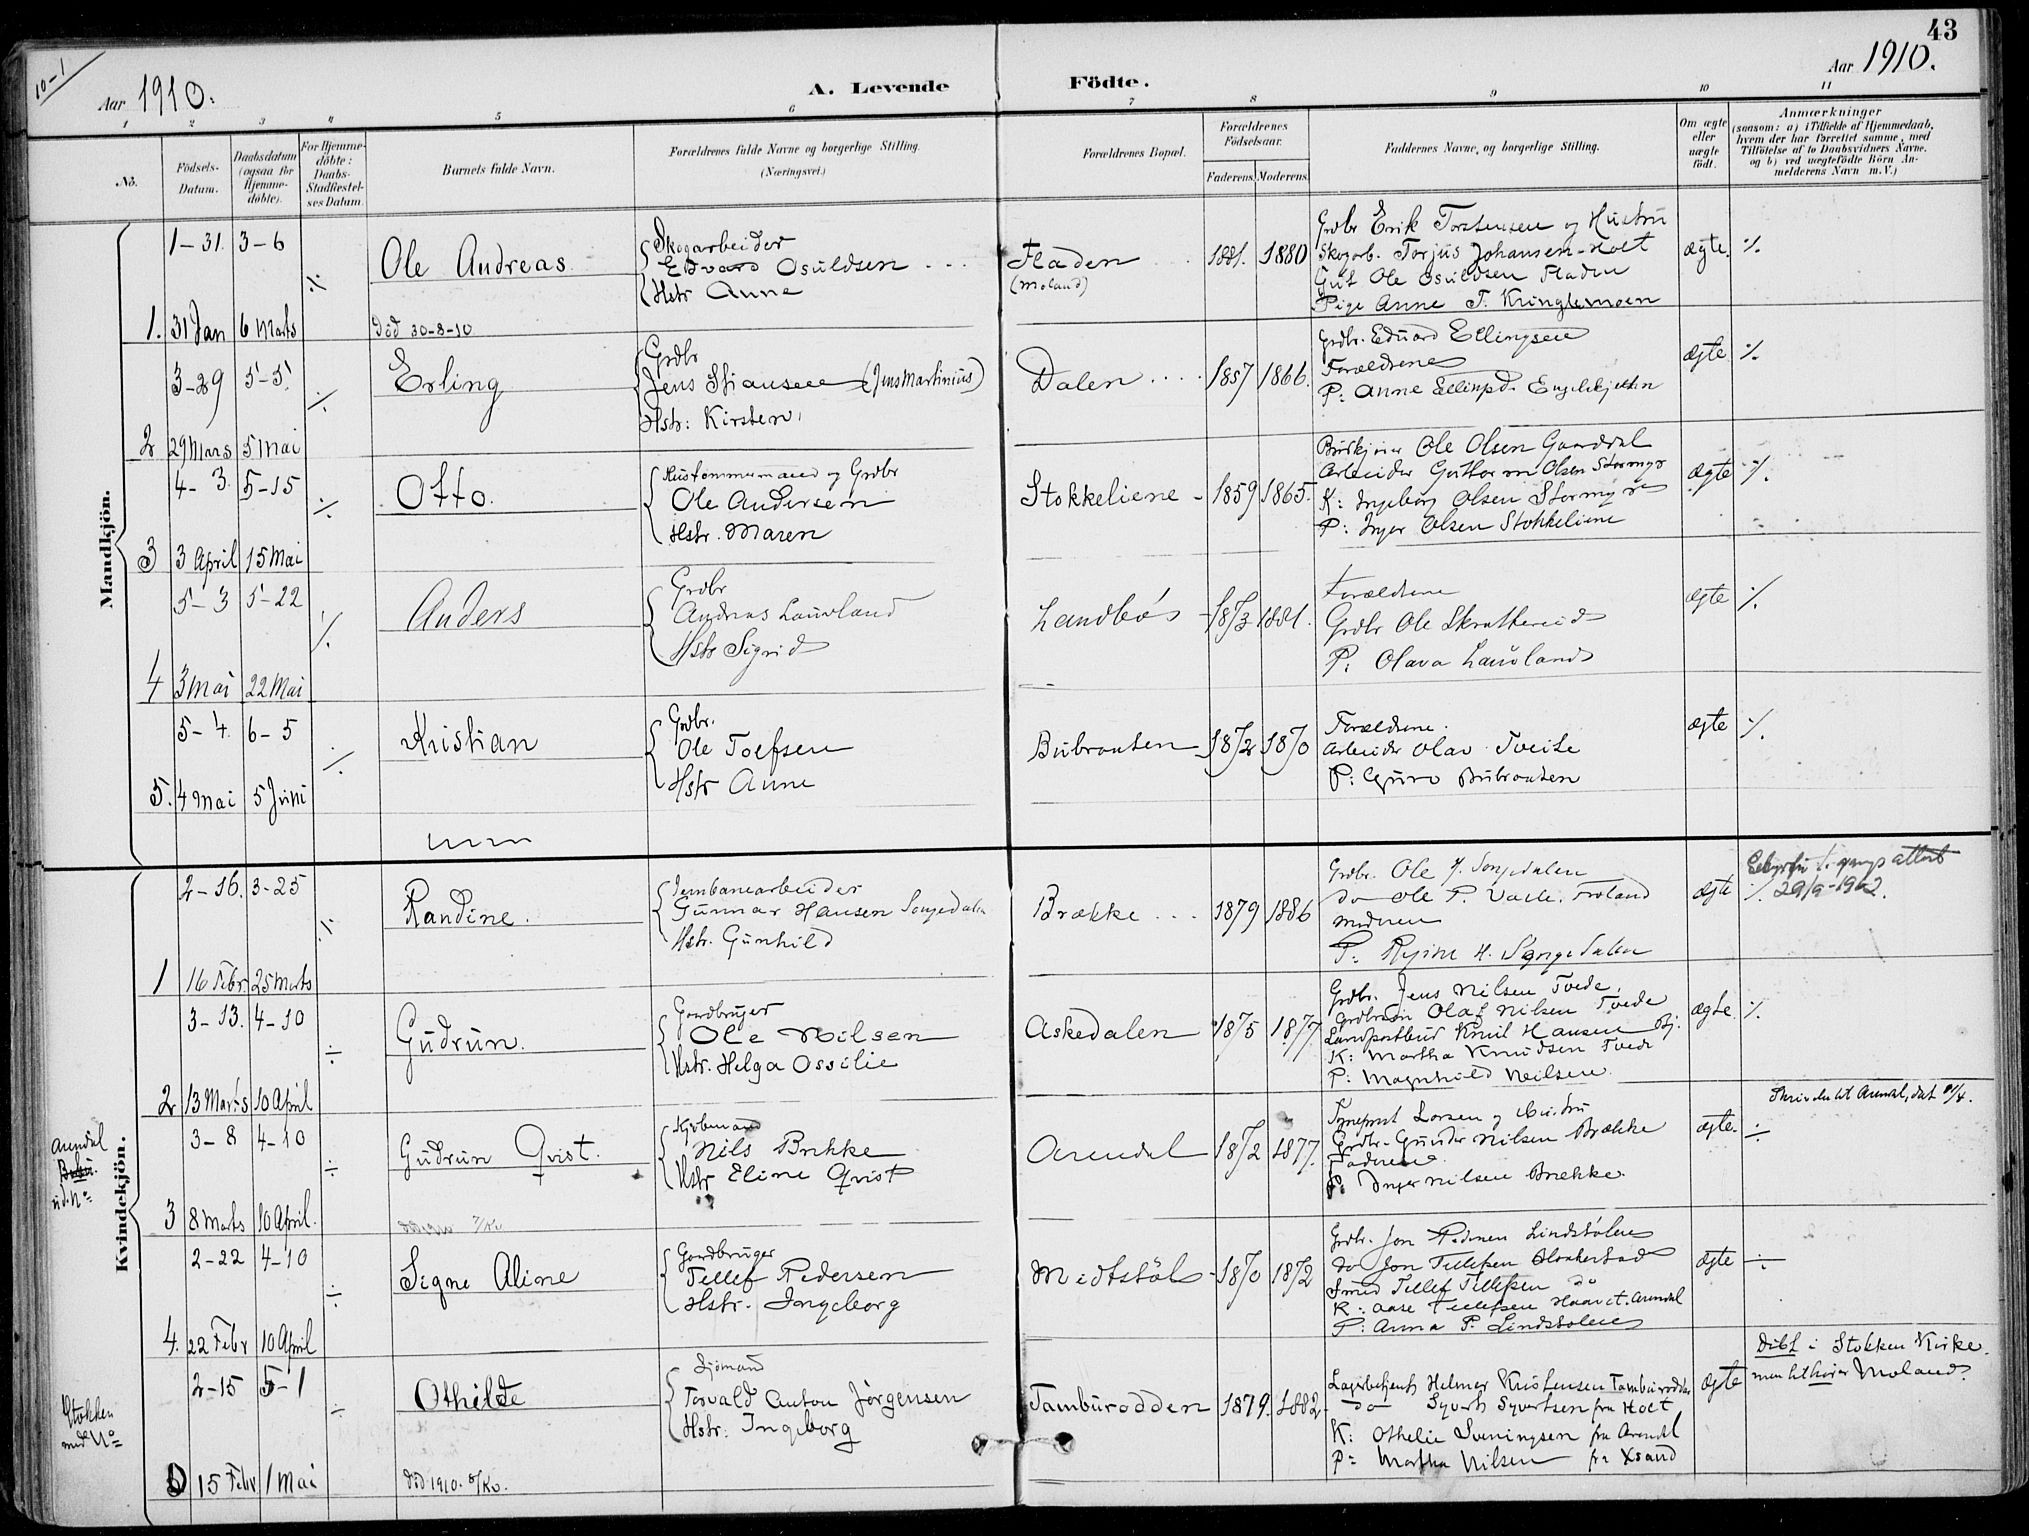 43
10-1
Aar 1910.
A. Levende Födte.
Aar 1910.
1 2 3 4 5 6 7 8 9 10 11
No.
Födsels-Datum.
Daabsdatum (ogsaa for Hjemme-döbte).
For Hjemme-döbte: Daabs-Stadfæstel-ses Datum.
Barnets fulde Navn.
Forældrenes fulde Navne og borgerlige Stilling.
(Næringsvei.)
Forældrenes Bopæl.
Forældrenes Födselsaar.
Faderens. Moderens.
Faddernes Navne, og borgerlige Stilling.
Om ægte eller uægte födt.
Anmærkninger
(saasom: a) i Tilfælde af Hjemmedaab, hvem der har forrettet samme, med Tilföielse af to Daabsvidners Navne. og b) ved uægtefödte Börn An-melderens Navn m.V.)
Mandkjön.
1-31. 3-6
1. 31 Jan 6 Marts
Ole Andreas
Död 30-8-10
Skogarbeider
Edvard Osuldsen
Hstr Anne
Fladen
(Moland)
1881. 1880
Grdbr Erik Torstensen og Hustru
Skogarb. Torjus Johansen-Holt
Gut Ole Osuldsen Fladen
Pige Anne T. Kringlemoen
ægte. ⁒
3-29 5-5.
2 29 Mars 5 Mai
Erling
Grdbr
Jens Stiansen (Jens Martinius)
Hstr: Kirsten
Dalen
1857 1866.
Grdbr. Edvard Ellingsen
Forældrene
P: Anne Ellingsd.
ægte ⁒
4-3. 5-15
3 3 April 15 Mai
Otto.
Hustømmermand og Grdbr
Ole Andersen
Hstr. Maren
Stokkeliene
1859 1865.
Ole Olsen Gaarddal
Arbeider Guttorm Olsen Stormyr
K: Ingeborg Olsen Stormyr
P: Inger Olsen Stokkeliene
ægte ⁒
5-3 5-22
4 3 Mai 22 Mai
Anders
Grdbr
Andreas Lauvland
Hstr Sigrid
Landbös
1873 1881.
Forældrene
Grdbr Ole Skratthereid
P: Olava Lauvland
ægte ⁒
5-4. 6-5
5. 4 Mai 5 Juni
Kristian
Grdbr.
Ole Toefsen
Hstr Anne
Bubraaten
1872 1870
Forældrene.
Arbeider Olav Tveite
P: Guro Bubraaten
ægte ⁒
Kvindekjön.
2-16. 3-25
1 16 Febr. 25 Marts
Randine.
Jernbanearbeider
Gunnar Hansen Songedalen
Hstr. Gunhild
Brække
1879 1886
Grdbr. Ole H. Songedalen
Do Ole P. Valle. Froland
Moderen
P: H. Songedalen
ægte ⁒
attest
29/9-1962.
3-13. 4-10
2 13 Marts 10 April
Gudrun.
Gaardbruger
Ole Nilsen
Hstr. Helga Ossilie
Askedalen
1875 1877
Grdbr. Jens Nilsen Tvede.
Grdbrsøn Olaf Nilsen Tvede
Landpostbud Knut Hansen
K: Martha Knudsen Tvede
P: Magnhild Neilsen
ægte ⁒
Arendal
ud. No
3-8 4-10
3 8 Marts 10 April.
Gudrun Qvist.
Kjøbmand
Nils Brække
Hstr Eline Qvist
Arendal
1872 1877.
Larsen og Hustru
Grdbr. Gunder Nilsen Brække
Faderen
P. Inger Nilsen Brække.
ægte. ÷
Skrivelse til Arendal, dat 21/4.
2-22 4-10
4. 22 Febr 10 April
Signe Aline
Gaardbruger
Tellef Pedersen
Hstr. Ingeborg
Midtstöl
1870 1872
Grdb. Jon Pedersen Lindstölen
Do Jon Tellefsen
Smed Tellef Tellefsen do
K: Aase Tellefsen Arendal
P: Anna P. Lindstölen
ægte ÷
Stokken
med No
2-15 5-1
5 15 Febr 1 Mai
Othilde
Död 1910. 8/Kv.
Sjömand
Torvald Anton Jörgensen
Hstr: Ingeborg
Tamburodden
1879. 1882
Lagerbetjent Helmer Kristensen Tamburodden
Do Syvert Syvertsen fra Holt
K: Othelie Sveningsen fra Arendal
P: Martha Nilsen fra Xsand
ægte
Döbt i Stokken Kirke.
men tilhører Moland.